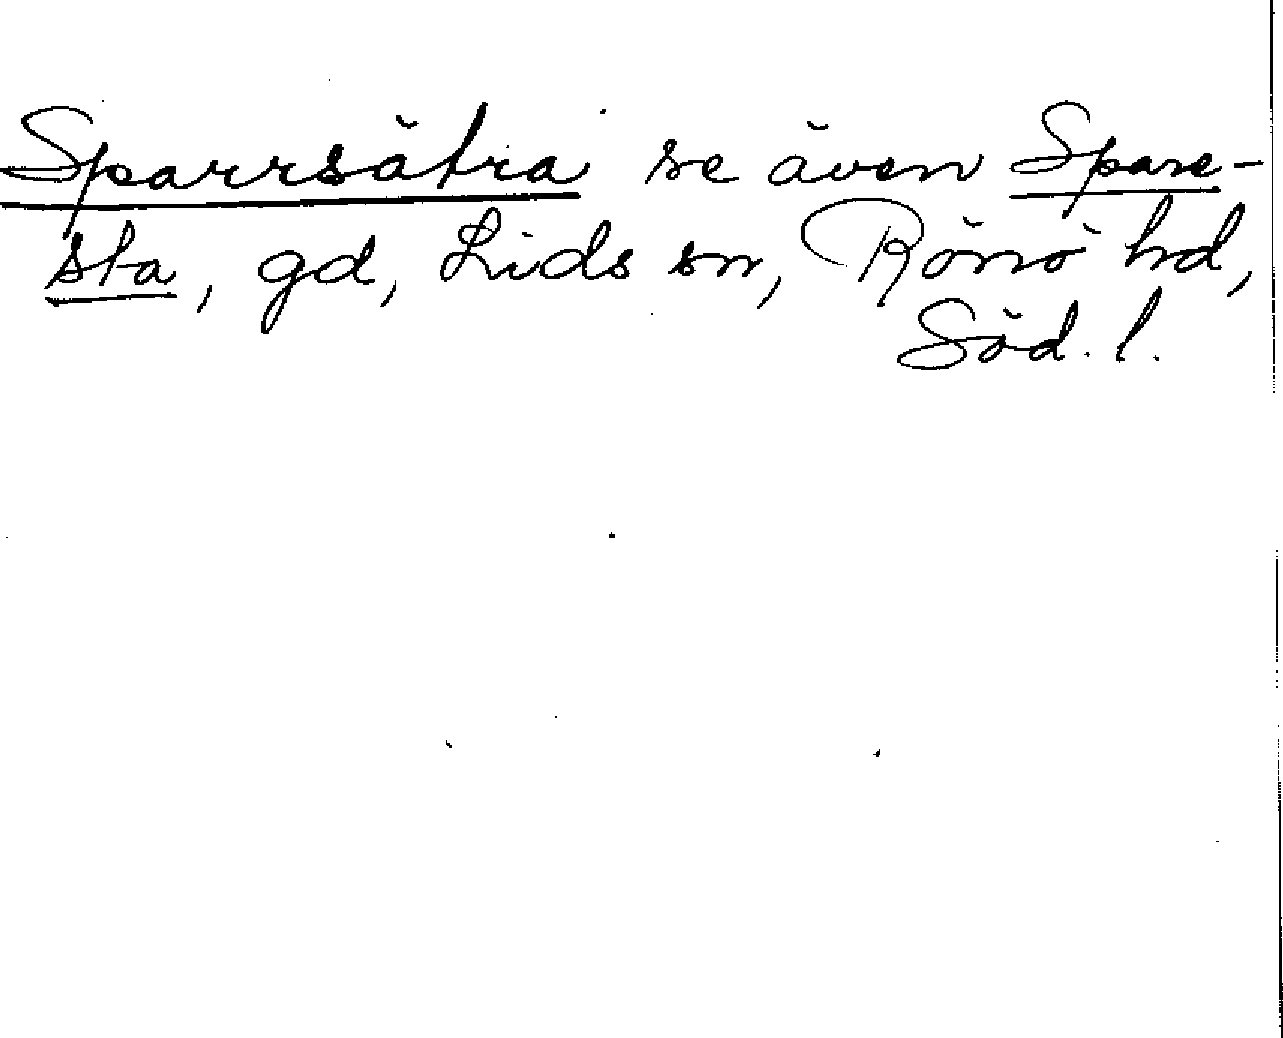 Sparrsätra se även Spare-
sta, gd, Lids sn, Rönö hd,
Söd. l.